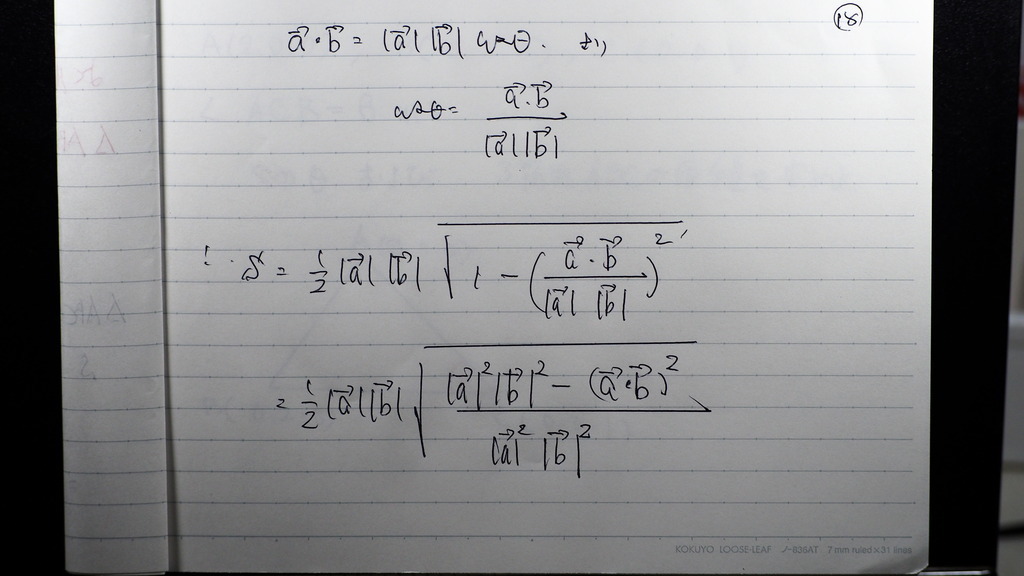 ⑱
$\vec{a} \cdot \vec{b} = |\vec{a}| |\vec{b}| \cos\theta$. より
$\cos\theta = \frac{\vec{a} \cdot \vec{b}}{|\vec{a}||\vec{b}|}$
∴ $S = \frac{1}{2} |\vec{a}| |\vec{b}| \sqrt{1 - \left(\frac{\vec{a} \cdot \vec{b}}{|\vec{a}| |\vec{b}|}\right)^2}$
$= \frac{1}{2} |\vec{a}||\vec{b}| \sqrt{\frac{|\vec{a}|^2 |\vec{b}|^2 - (\vec{a} \cdot \vec{b})^2}{|\vec{a}|^2 |\vec{b}|^2}}$
KOKUYO LOOSE-LEAF ノ-836AT 7 mm ruled×31 lines